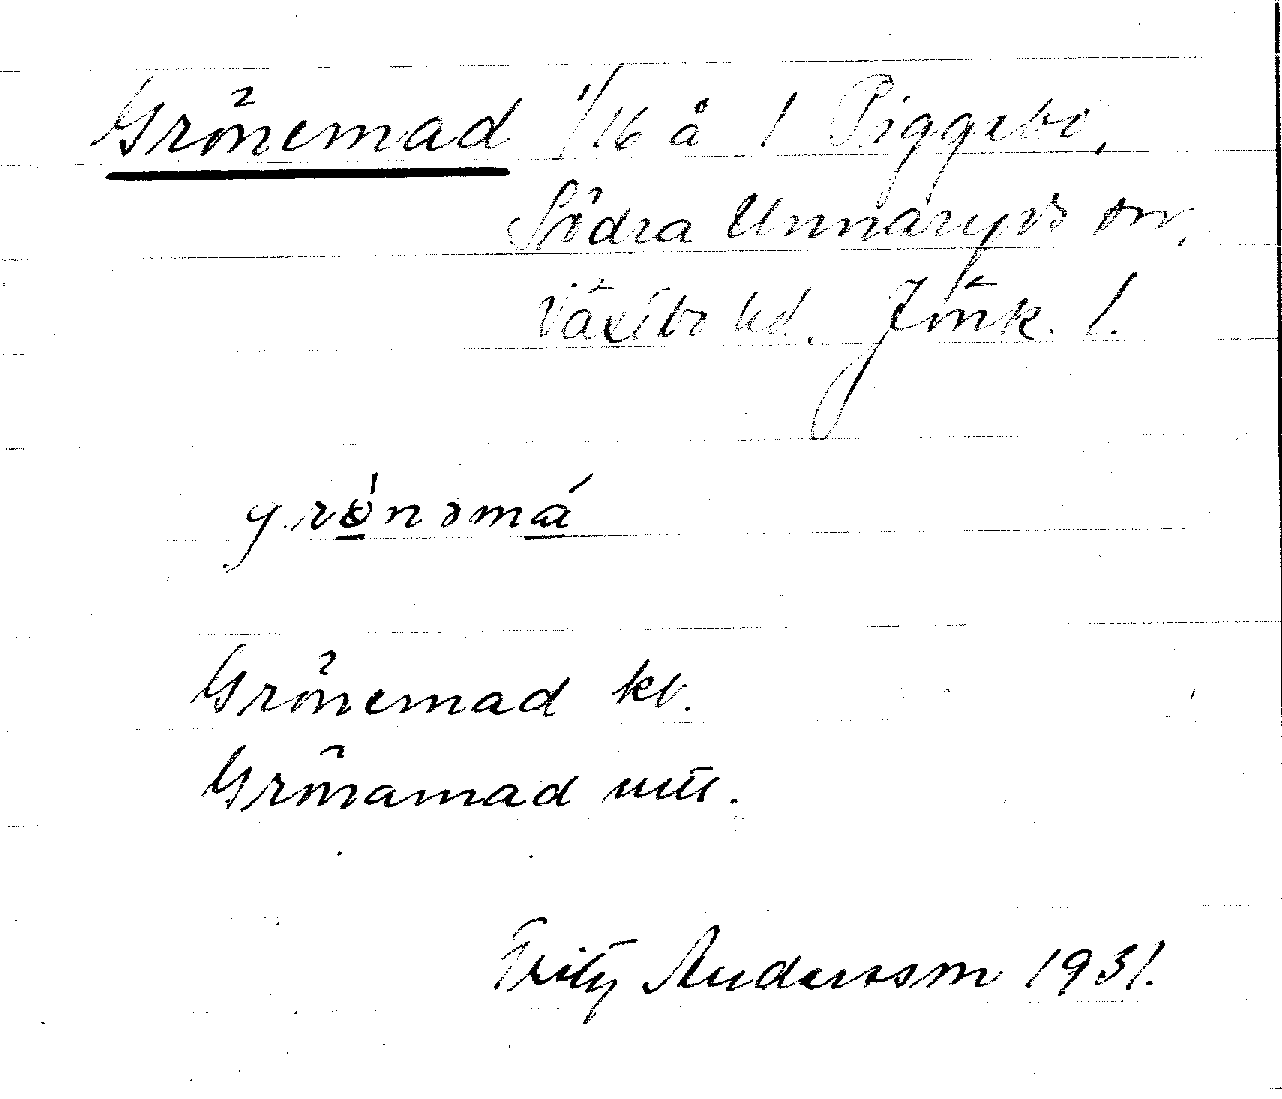 Grönemad 1/16 å 1 Piggebo,
Södra Unnaryds sn,
Västbo hd. Jönk. l.
grönəmá
Grönemad kb.
Grönamad utt.
Fritz Andersson 1931.